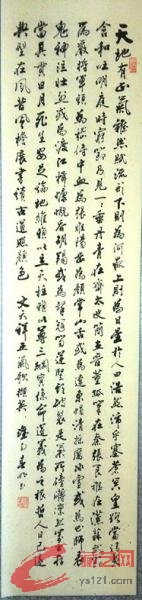 天地有正氣雜然賦流形下則為河嶽上則為日星於人曰浩然沛乎塞蒼冥皇路當清夷
含和吐明庭時窮節乃見一一垂丹青在齊太史簡在晉董狐筆在秦張良椎在漢蘇武節
為嚴將軍頭為嵇侍中血為張睢陽齒為顏常山舌或為遼東帽清操厲冰雪或為出師表
鬼神泣壯烈或為渡江楫慷慨吞胡羯或為擊賊笏逆豎頭破裂是氣所磅礡凜烈萬古存
當其貫日月生死安足論地維賴以立天柱賴以尊三綱實係命道義為之根哲人日已遠
典型在夙昔風簷展書讀古道照顏色 文天祥正氣歌
ys121.com